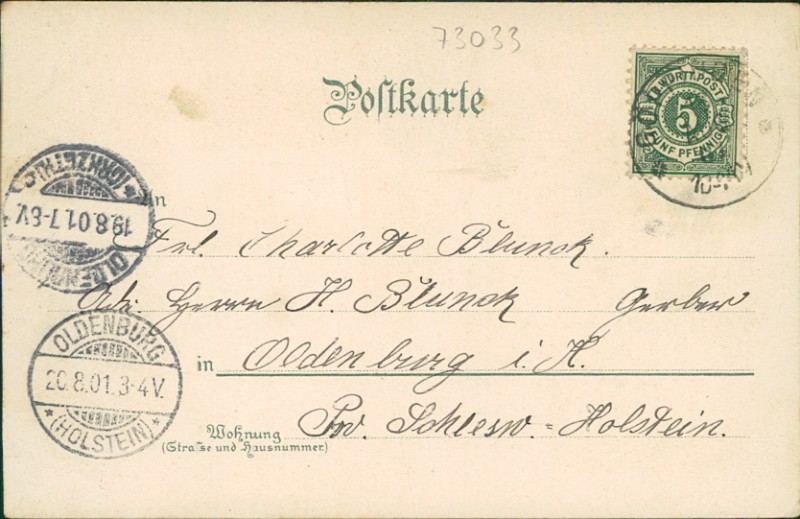 73033
Postkarte
K. WÜRTT. POST
5
FÜNF PFENNIG
An
Frl. Charlotte Blunck.
Adr. Herrn H. Blunck Gerber
in Oldenburg i. H.
Prv. Schlesw.=Holstein.
Wohnung
(Strasse und Hausnummer)
19.8.01.7-8V.
OLDENBURG
20.8.01.3-4V.
* (HOLSTEIN) *